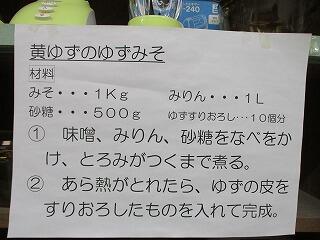 -240
黄ゆずのゆずみそ
材料
みそ・・・１Ｋｇ　みりん・・・１Ｌ
砂糖・・・５００ｇ　ゆずすりおろし…１０個分
①　味噌、みりん、砂糖をなべをか
け、とろみがつくまで煮る。
②　あら熱がとれたら、ゆずの皮を
すりおろしたものを入れて完成。